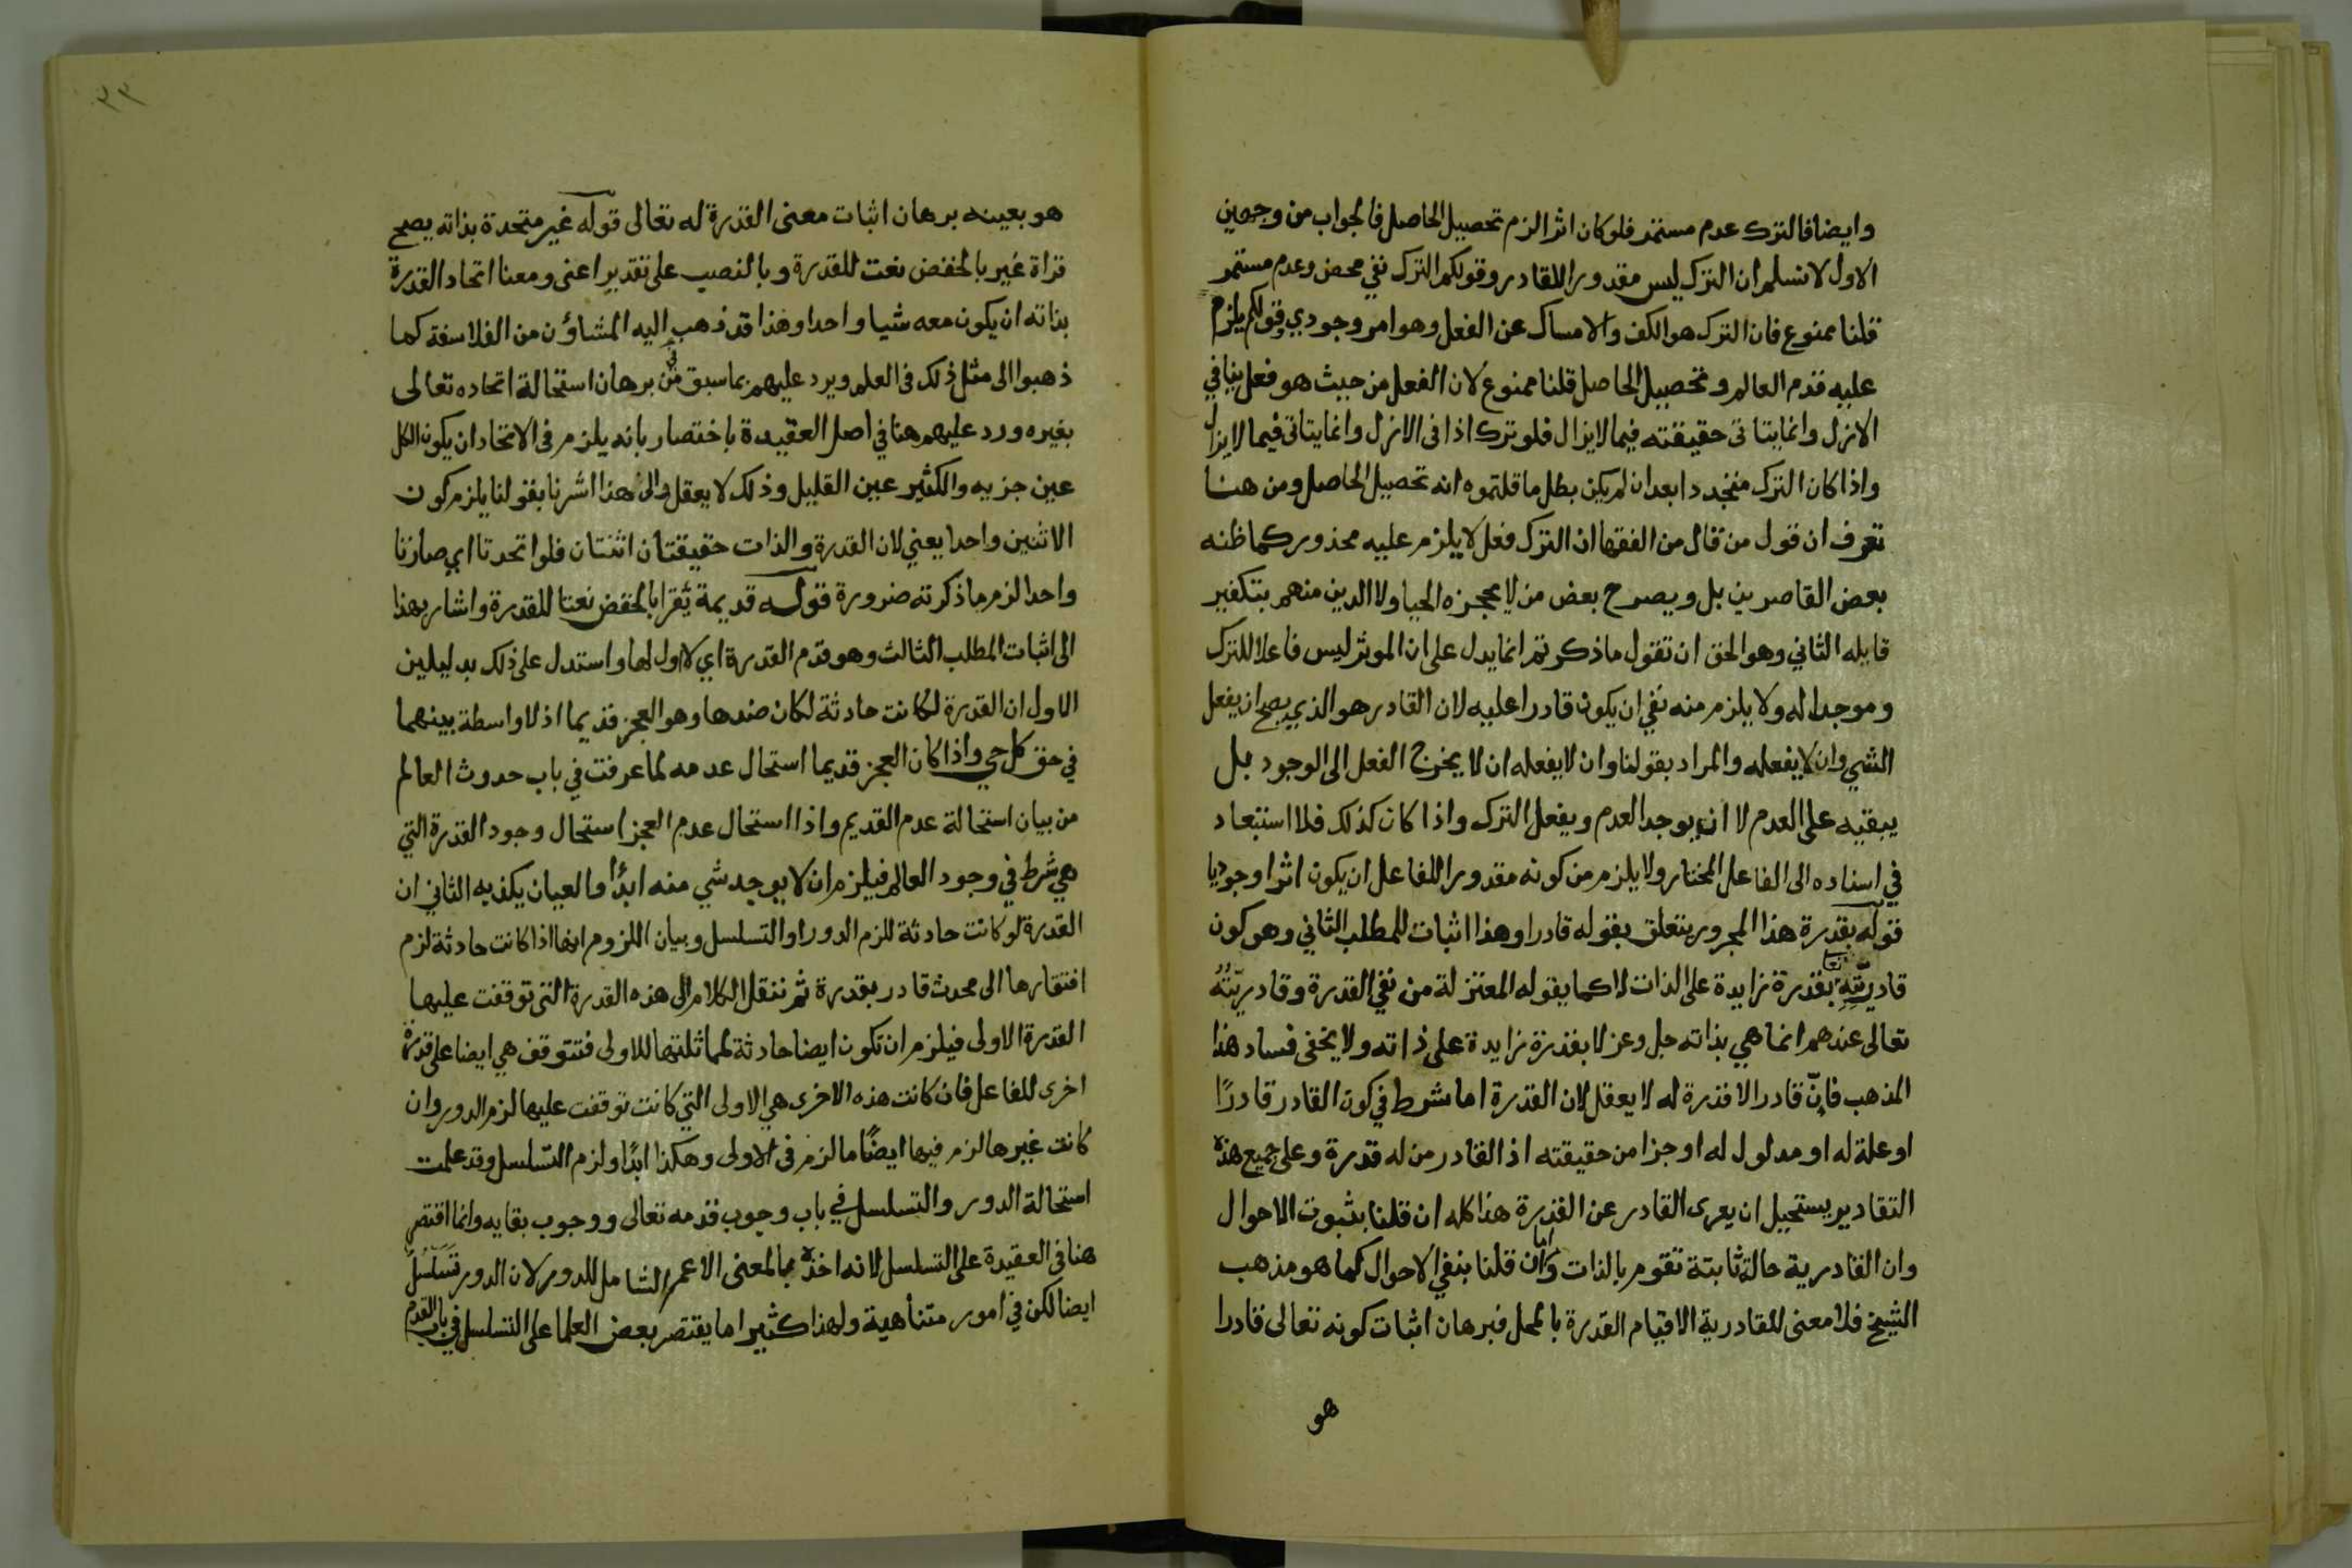 وايضا فالترك عدم مستمر فلو كان اثرا لزم تحصيل الحاصل فالجواب من وجهين
الاول لا نسلم ان الترك ليس مقدورا للقادر وقولكم الترك نفي محض وعدم مستمر
قلنا ممنوع فان الترك هو الكف والامساك عن الفعل وهو امر وجودي وقولكم يلزم
عليه قدم العالم وتحصيل الحاصل قلنا ممنوع لان الفعل من حيث هو فعل ينافي
الازل وانما يتاتى حقيقته فيما لا يزال فلو ترك اذا فى الازل وانما يتاتى فيما لا يزال
واذا كان الترك متجددا بعد ان لم يكن بطل ما قلتموه انه تحصيل الحاصل ومن هنا
تعرف ان قول من قال من الفقها ان الترك فعل لا يلزم عليه محذور كما ظنه
بعض القاصرين بل ويصرح بعض من لا يحجزه الحيا ولا الدين منهم بتكفير
قايله الثاني وهو الحق ان تقول ما ذكرتم انما يدل على ان الموثر ليس فاعلا للترك
وموجدا له ولا يلزم منه نفي ان يكون قادرا عليه لان القادر هو الذي يصح ان يفعل
الشي وان لا يفعله والمراد بقولنا وان لا يفعله ان لا يخرج الفعل الى الوجود بل
يبقيه على العدم لا ان يوجد العدم ويفعل الترك واذا كان كذلك فلا استبعاد
في اسناده الى الفاعل المختار ولا يلزم من كونه مقدورا للفاعل ان يكون اثرا وجوديا
قوله بقدرة هذا المجرور يتعلق بقوله قادرا وهذا اثبات للمطلب الثاني وهو كون
قادريته تعا بقدرة زايدة على الذات لا كما يقوله المعتزلة من نفي القدرة وقادريته
تعالى عندهم انما هي بذاته جل وعز لا بقدرة زايدة على ذاته ولا يخفى فساد هذا
المذهب فان قادرا لا قدرة له لا يعقل لان القدرة اما شرط في كون القادر قادرًا
او علة له او مدلول له او جزا من حقيقته اذ القادر من له قدرة وعلى جميع هذه
التقادير يستحيل ان يعرى القادر عن القدرة هذا كله ان قلنا بثبوت الاحوال
وان القادرية حالة ثابتة تقوم بالذات واما ان قلنا بنفي الاحوال كما هو مذهب
الشيخ فلا معنى للقادرية الا قيام القدرة بالمحل فبرهان اثبات كونه تعالى قادرا
هو
٣٣
هو بعينه برهان اثبات معنى القدرة له تعالى قوله غير متحدة بذاته يصح
قراة غير بالخفض نعت للقدرة وبالنصب على تقدير اعنى ومعنا اتحاد القدرة
بذاته ان يكون معه شيا واحدا وهذا قد ذهب اليه المشاؤن من الفلاسفة كما
ذهبوا الى مثل ذلك فى العلم ويرد عليهم بما سبق من برهان استحالة اتحاده تعالى
بغيره ورد عليهم هنا في اصل العقيدة باختصار بانه يلزم فى الاتحاد ان يكون الكل
عين جزيه والكثير عين القليل وذلك لا يعقل والى هذا اشرنا بقولنا يلزم كون
الاثنين واحدا يعني لان القدرة والذات حقيقتان اثنتان فلو اتحدتا اي صارتا
واحدا لزم ما ذكرته ضرورة قوله قديمة يقرا بالخفض نعتا للقدرة واشار بهذا
الى اثبات المطلب الثالث وهو قدم القدرة اي لا اول لها واستدل على ذلك بدليلين
الاول ان القدرة لو كانت حادثة لكان ضدها وهو العجز قديما اذ لا واسطة بينهما
في حق كل حي واذا كان العجز قديما استحال عدمه لما عرفت في باب حدوث العالم
من بيان استحالة عدم القديم واذا استحال عدم العجز استحال وجود القدرة التي
هي شرط في وجود العالم فيلزم ان لا يوجد شي منه ابدًا والعيان يكذبه الثاني ان
القدرة لو كانت حادثة للزم الدور او التسلسل وبيان اللزوم انها اذا كانت حادثة لزم
افتقارها الى محدث قادر بقدرة ثم ننقل الكلام الى هذه القدرة التى توقفت عليها
القدرة الاولى فيلزم ان تكون ايضا حادثة لمماثلتها للاولى فتتوقف هي ايضا على قدرة
اخرى للفاعل فان كانت هذه الاخرى هي الاولى التي كانت توقفت عليها لزم الدور وان
كانت غيرها لزم فيها ايضًا ما لزم فى الاولى وهكذا ابدًا ولزم التسلسل وقد علمت
استحالة الدور والتسلسل في باب وجوب قدمه تعالى ووجوب بقايه وانما اقتصر
هنا فى العقيدة على التسلسل لانه اخذه بالمعنى الاعم الشامل للدور لان الدور تسلسل
ايضا لكن في امور متناهية ولهذا كثيرا ما يقتصر بعض العلما على التسلسل في باب القدم